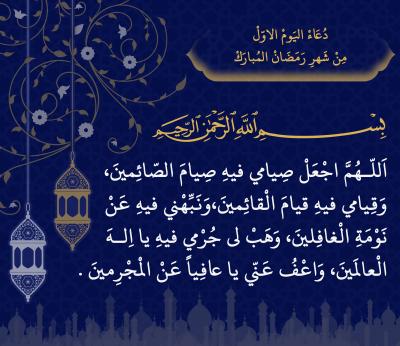 دُعَاءُ اليَومُ الاوّلْ
مِنْ شَهرِ رَمَضَانْ المُبارَكْ
بِسْمِ اللَّهِ الرَّحْمَنِ الرَّحِيمِ
اَللّـهُمَّ اجْعَلْ صِيامي فيهِ صِيامَ الصّائِمينَ،
وَقِيامي فيهِ قيامَ الْقائِمينَ،وَنَبِّهْني فيهِ عَنْ
نَوْمَةِ الْغافِلينَ، وَهَبْ لى جُرْمي فيهِ يا اِلـهَ
الْعالَمينَ، وَاعْفُ عَنّي يا عافِياً عَنْ الْمجْرِمينَ .